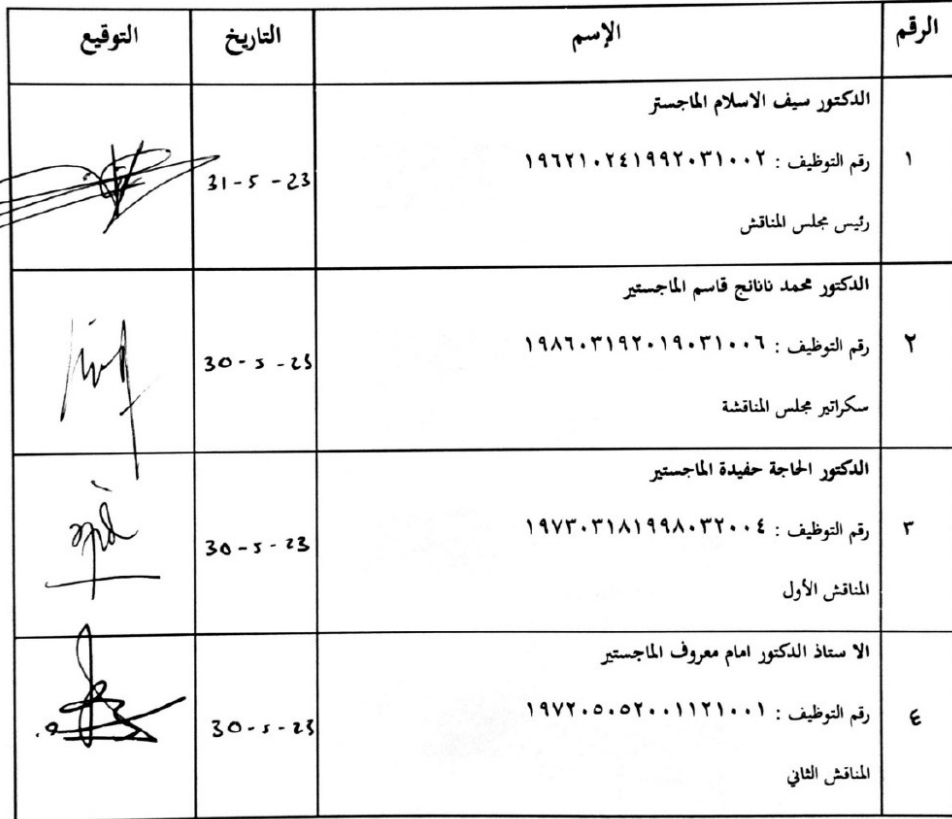 الرقم الإسم التاريخ التوقيع
الدكتور سيف الاسلام الماجستر
١ رقم التوظيف : ١٩٦٢١٠٢٤١٩٩٢٠٣١٠٠٢ 31-5-23
رئيس مجلس المناقش
الدكتور محمد نانانج قاسم الماجستير
٢ رقم التوظيف : ١٩٨٦٠٣١٩٢٠١٩٠٣١٠٠٦ 30-5-23
سكراتير مجلس المناقشة
الدكتور الحاجة حفيدة الماجستير
٣ رقم التوظيف : ١٩٧٣٠٣١٨١٩٩٨٠٣٢٠٠٤ 30-5-23
المناقش الأول
الا ستاذ الدكتور امام معروف الماجستير
٤ رقم التوظيف : ١٩٧٢٠٥٠٥٢٠٠١١٢١٠٠١ 30-5-23
المناقش الثاني